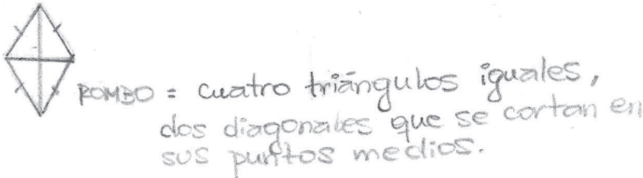 ROMBO = cuatro triángulos iguales,
dos diagonales que se cortan en
sus puntos medios.